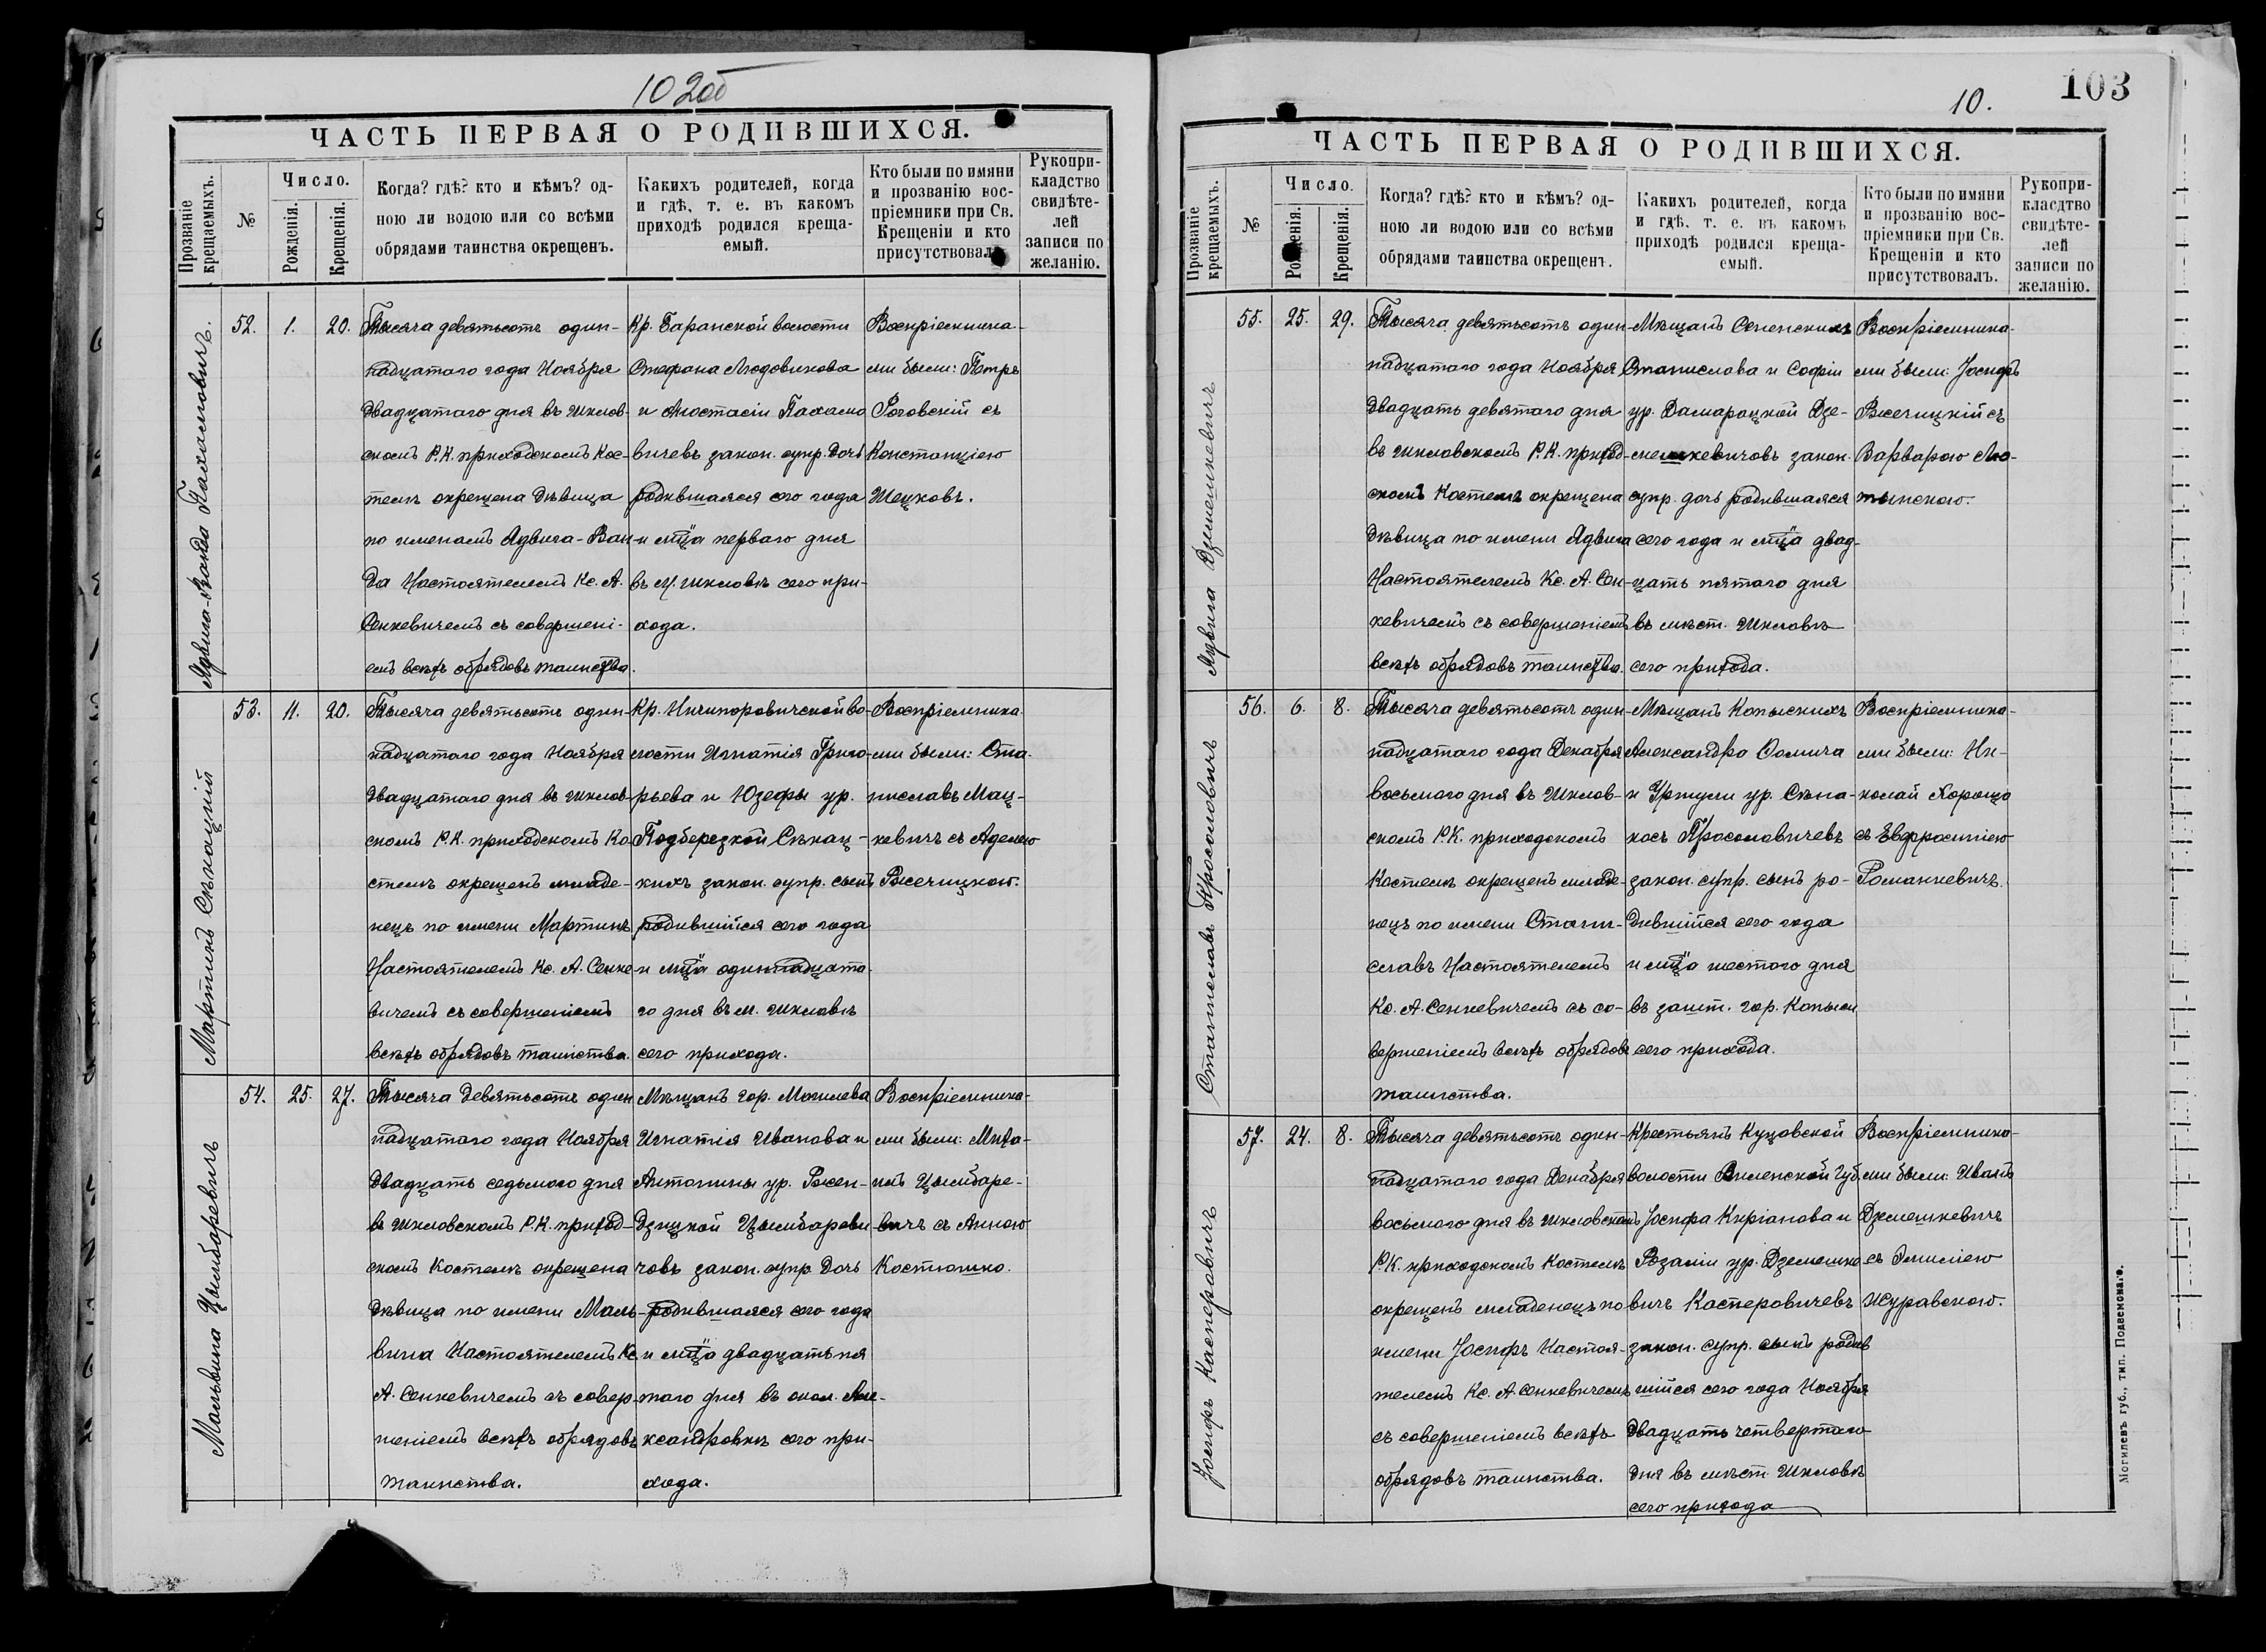 102об
ЧАСТЬ ПЕРВАЯ О РОДИВШИХСЯ.
Прозваніе крещаемыхъ.
№
Число.
Рожденія.
Крещенія.
Когда? гдѣ? кто и кѣмъ? од-
ною ли водою или со всѣми
обрядами таинства окрещенъ.
Какихъ родителей, когда
и гдѣ, т. е. въ какомъ
приходѣ родился креща-
емый.
Кто были по имяни
и прозванію вос-
пріемники при Св.
Крещеніи и кто
присутствовалъ.
Рукопри-
кладство
свидѣте-
лей
записи по
желанію.
Ядвига-Ванда Пахамовичъ.
52.
1.
20.
Тысяча девятьсотъ один-
надцатаго года Ноября
двадцатаго дня въ Шклов-
скомъ Р.К. приходскомъ Кос-
телѣ окрещена дѣвица
по именамъ Ядвига-Ван-
да Настоятелемъ Кс. А.
Сенкевичемъ съ совершені-
емъ всѣхъ обрядовъ таинства.
Кр. Баранской волости
Стефана Людовикова
и Анастасіи Пахамо
вичевъ закон. супр. дочь
родившаяся сего года
и мца перваго дня
въ м. Шкловѣ сего при-
хода.
Воспріемника-
ми были: Петръ
Роговскій съ
Констанціею
Шецковъ.
Мартинъ Сѣкацкій
53.
11.
20.
Тысяча девятьсотъ один-
надцатаго года Ноября
двадцатаго дня въ Шклов-
скомъ Р.К. приходскомъ Ко
стелѣ окрещенъ младе-
нецъ по имени Мартинъ
Настоятелемъ Кс. А. Сенке
вичемъ съ совершеніемъ
всѣхъ обрядовъ таинства.
Кр. Ничипоровичской во-
лости Игнатія Григо-
рьева и Юзефы ур.
Подберезкой Сѣкац-
кихъ закон. супр. сынъ
родившійся сего года
и мца одиннадцата-
го дня въ м. Шкловѣ
сего прихода.
Воспріемника
ми были: Ста-
ниславъ Мац-
кевичъ съ Аделею
Ржечицкою.
Мальвина Цымборевичъ
54.
25.
27.
Тысяча девятьсотъ один
надцатаго года Ноября
двадцать седьмого дня
въ Шкловскомъ Р.К. приход-
скомъ Костелѣ окрещена
дѣвица по имени Маль-
вина Настоятелемъ Кс
А. Сенкевичемъ съ совер-
шеніемъ всѣхъ обрядовъ
таинства.
Мѣщанъ гор. Могилева
Игнатія Иванова и
Антонины ур. Ржен-
дзицкой Цымбореви
човъ закон. супр. дочь
родившаяся сего года
и мца двадцать пя
таго дня въ окол. Але-
ксандровкѣ сего при-
хода.
Воспріемника-
ми были: Миха-
илъ Цымборе-
вичъ съ Анною
Костюшко.
103
10.
ЧАСТЬ ПЕРВАЯ О РОДИВШИХСЯ.
Прозваніе крещаемыхъ.
№
Число.
Рожденія.
Крещенія.
Когда? гдѣ? кто и кѣмъ? од-
ною ли водою или со всѣми
обрядами таинства окрещенъ.
Какихъ родителей, когда
и гдѣ, т. е. въ какомъ
приходѣ родился креща-
емый.
Кто были по имяни
и прозванію вос-
пріемники при Св.
Крещеніи и кто
присутствовалъ.
Рукопри-
класдтво
свидѣте-
лей
записи по
желанію.
Ядвига Дземешкевичъ
55.
25.
29.
Тысяча девятьсотъ один
надцатаго года Ноября
двадцать девятаго дня
въ Шкловскомъ Р.К. приход-
скомъ Костелѣ окрещена
дѣвица по имени Ядвига
Настоятелемъ Кс. А. Сен-
кевичемъ съ совершеніемъ
всѣхъ обрядовъ таинства.
Мѣщанъ Сененскихъ
Станислава и Софіи
ур. Дамарацкой Дзе-
мешкевичовъ закон.
супр. дочь родившаяся
сего года и мца двад-
цать пятаго дня
въ мѣст. Шкловѣ
сего прихода.
Воспріемника-
ми были: Іосифъ
Ржечицкій съ
Варварою Лю-
тынскою.
Станиславъ Просоловичъ
56.
6.
8.
Тысяча девятьсотъ один
надцатаго года Декабря
восьмого дня въ Шклов-
скомъ Р.К. приходскомъ
Костелѣ окрещенъ младе-
нецъ по имени Стани-
славъ Настоятелемъ
Кс. А. Сенкевичемъ съ со-
вершеніемъ всѣхъ обрядовъ
таинства.
Мѣщанъ Копыскихъ
Александра Фомича
и Уршули ур. Сѣна-
кось Просоловичевъ
закон. супр. сынъ ро-
дившійся сего года
и мца шестого дня
въ зашт. гор. Копыси
сего прихода.
Воспріемника-
ми были: Ни-
колай Хорощо
съ Евфросиніею
Романкевичъ.
Іосифъ Касперовичъ
57.
24.
8.
Тысяча девятьсотъ один-
надцатаго года Декабря
восьмого дня въ Шкловскомъ
Р.К. приходскомъ Костелѣ
окрещенъ младенецъ по
имени Іосифъ Настоя-
телемъ Кс. А. Сенкевичемъ
съ совершеніемъ всѣхъ
обрядовъ таинства.
Крестьянъ Куцовской
волости Виленской губ.
Іосифа Кипріанова и
Розаліи ур. Дземешке
вичъ Касперовичевъ
закон. супр. сынъ родив
шійся сего года Ноября
двадцать четвертаго
дня въ мѣст Шкловѣ
сего прихода
Воспріемника-
ми были: Иванъ
Дземешкевичъ
съ Эмиліею
Журавскою.
Могилевъ губ., тип. Подземскаго.